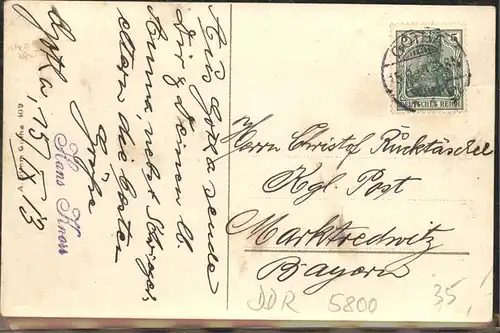 Aus Gotha sende
Dir & Deinen lb.
Anna, nebst Schwieger-
eltern die besten
Grüße
Hans Knorr
Gotha, 15/X 13
Herrn Christof Rücktäschel
Kgl. Post
Marktredwitz
Bayern
GOTHA
5
DEUTSCHES REICH
DDR 5800
35,